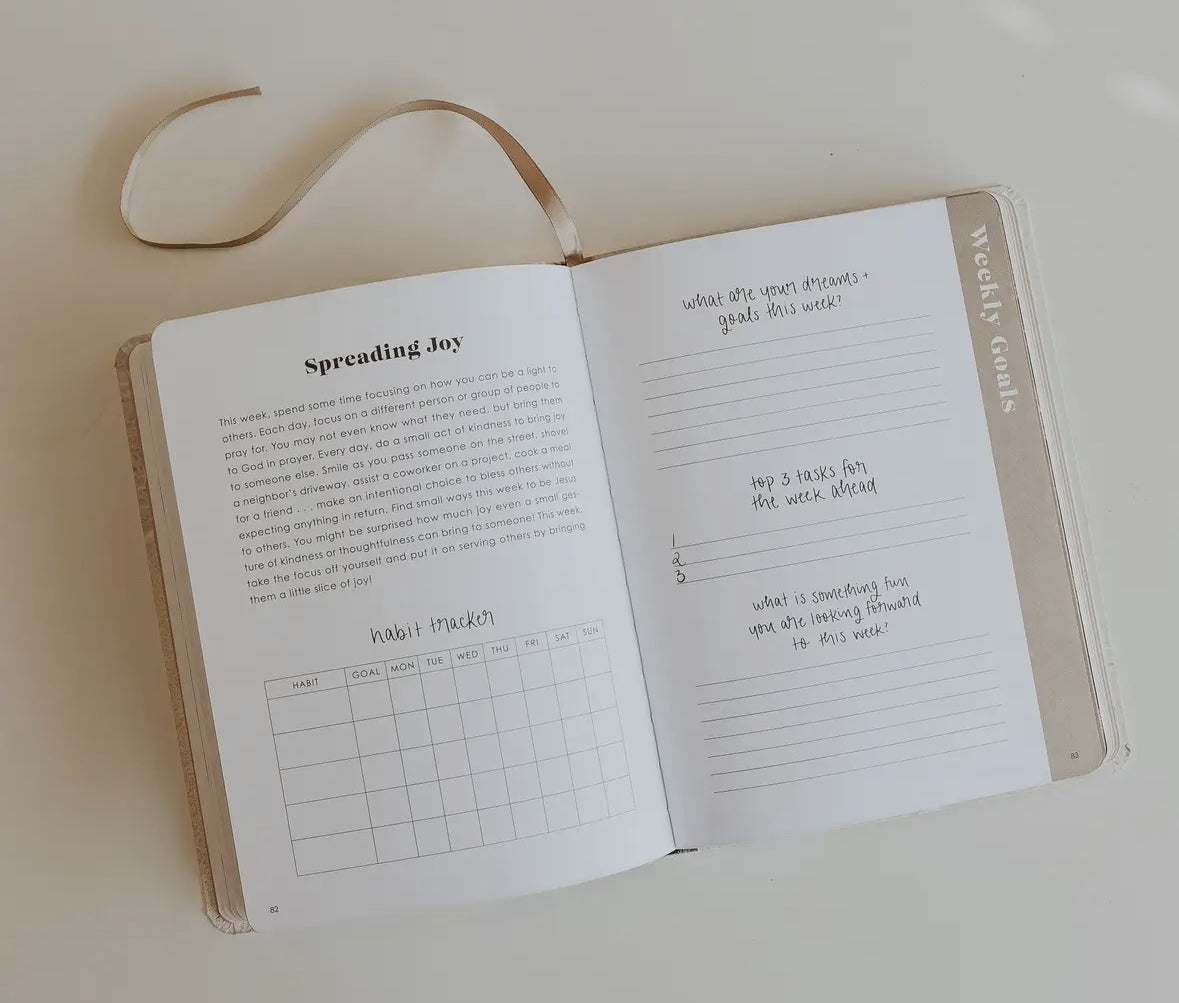 Spreading Joy
This week, spend some time focusing on how you can be a light to
others. Each day, focus on a different person or group of people to
pray for. You may not even know what they need, but bring them
to God in prayer. Every day, do a small act of kindness to bring joy
to someone else. Smile as you pass someone on the street, shovel
a neighbor's driveway, assist a coworker on a project, cook a meal
for a friend . . . make an intentional choice to bless others without
expecting anything in return. Find small ways this week to be Jesus
to others. You might be surprised how much joy even a small ges-
ture of kindness or thoughtfulness can bring to someone! This week,
take the focus off yourself and put it on serving others by bringing
them a little slice of joy!
habit tracker
HABIT GOAL MON TUE WED THU FRI SAT SUN
82
what are your dreams +
goals this week?
top 3 tasks for
the week ahead
1
2
3
what is something fun
you are looking forward
to this week?
Weekly Goals
83